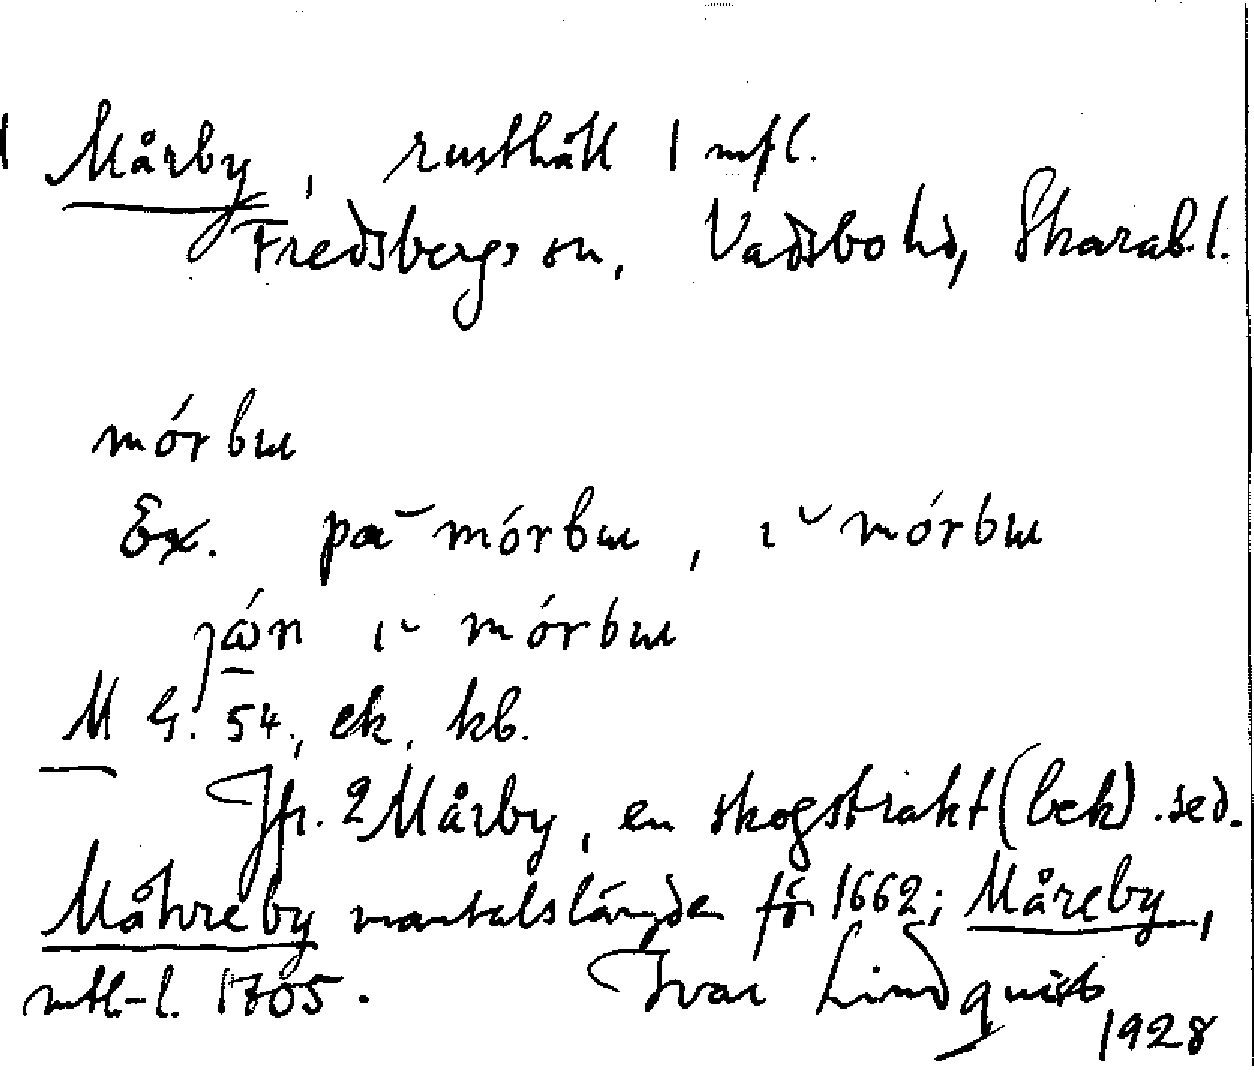 1 Mårby, rusthåll 1 mtl.
Fredsbergs sn, Vadsbo hd, Skarab.l.
mórbɯ
Ex. pa ̆ mórbɯ, ı ̆ mórbɯ
ȷώn ı ̆ mórbɯ
M G. 54, ek. kb.
Jfr. 2 Mårby, en skogstrakt (bek). sed.
Måhreby mantalslängden för 1662; Måreby,
mtl-l. 1705. Ivar Lindquist
1928